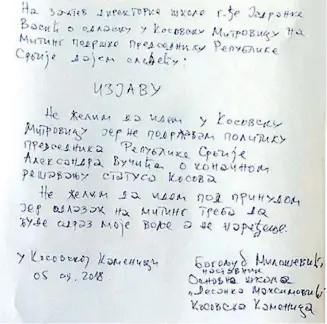 На захтев директорке школе г-ђе Јадранке
Васић о одласку у Косовску Митровицу на
Митинг подршке председнику Републике
Србије дајем следећу:
ИЗЈАВУ
Не желим да идем у Косовску
Митровицу јер не подржавам политику
председника Републике Србије
Александра Вучића о коначном
решавању статуса Косова
Не желим да идем под принудом
јер одлазак на митинг треба да
буде одраз моје воље а не наређење.
у Косовској Каменици
05.09.2018.
Боголуб Милошевић,
наставник
Основна школа
„Десанка Максимовић"
Косовска Каменица